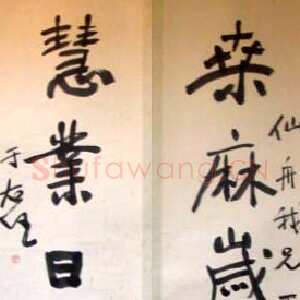 桑麻歲
仙舟我兄
慧業日
于右任
Shufawang.CN